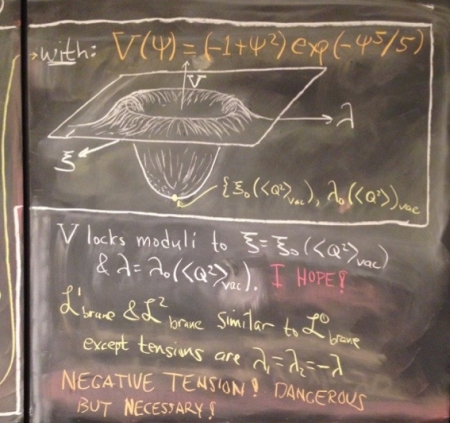 → with: V(Ψ) = (-1+Ψ²) exp(-Ψ⁵/5)
V
λ
ξ
{ξ₀(⟨Q²⟩vac), λ₀(⟨Q²⟩)vac
V locks moduli to ξ = ξ₀(⟨Q²⟩vac)
& λ = λ₀(⟨Q²⟩vac). I HOPE!
ℒ¹brane & ℒ²brane similar to ℒ⁰brane
except tensions are λ₁ = λ₂ = -λ
NEGATIVE TENSION! DANGEROUS
BUT NECESSARY!